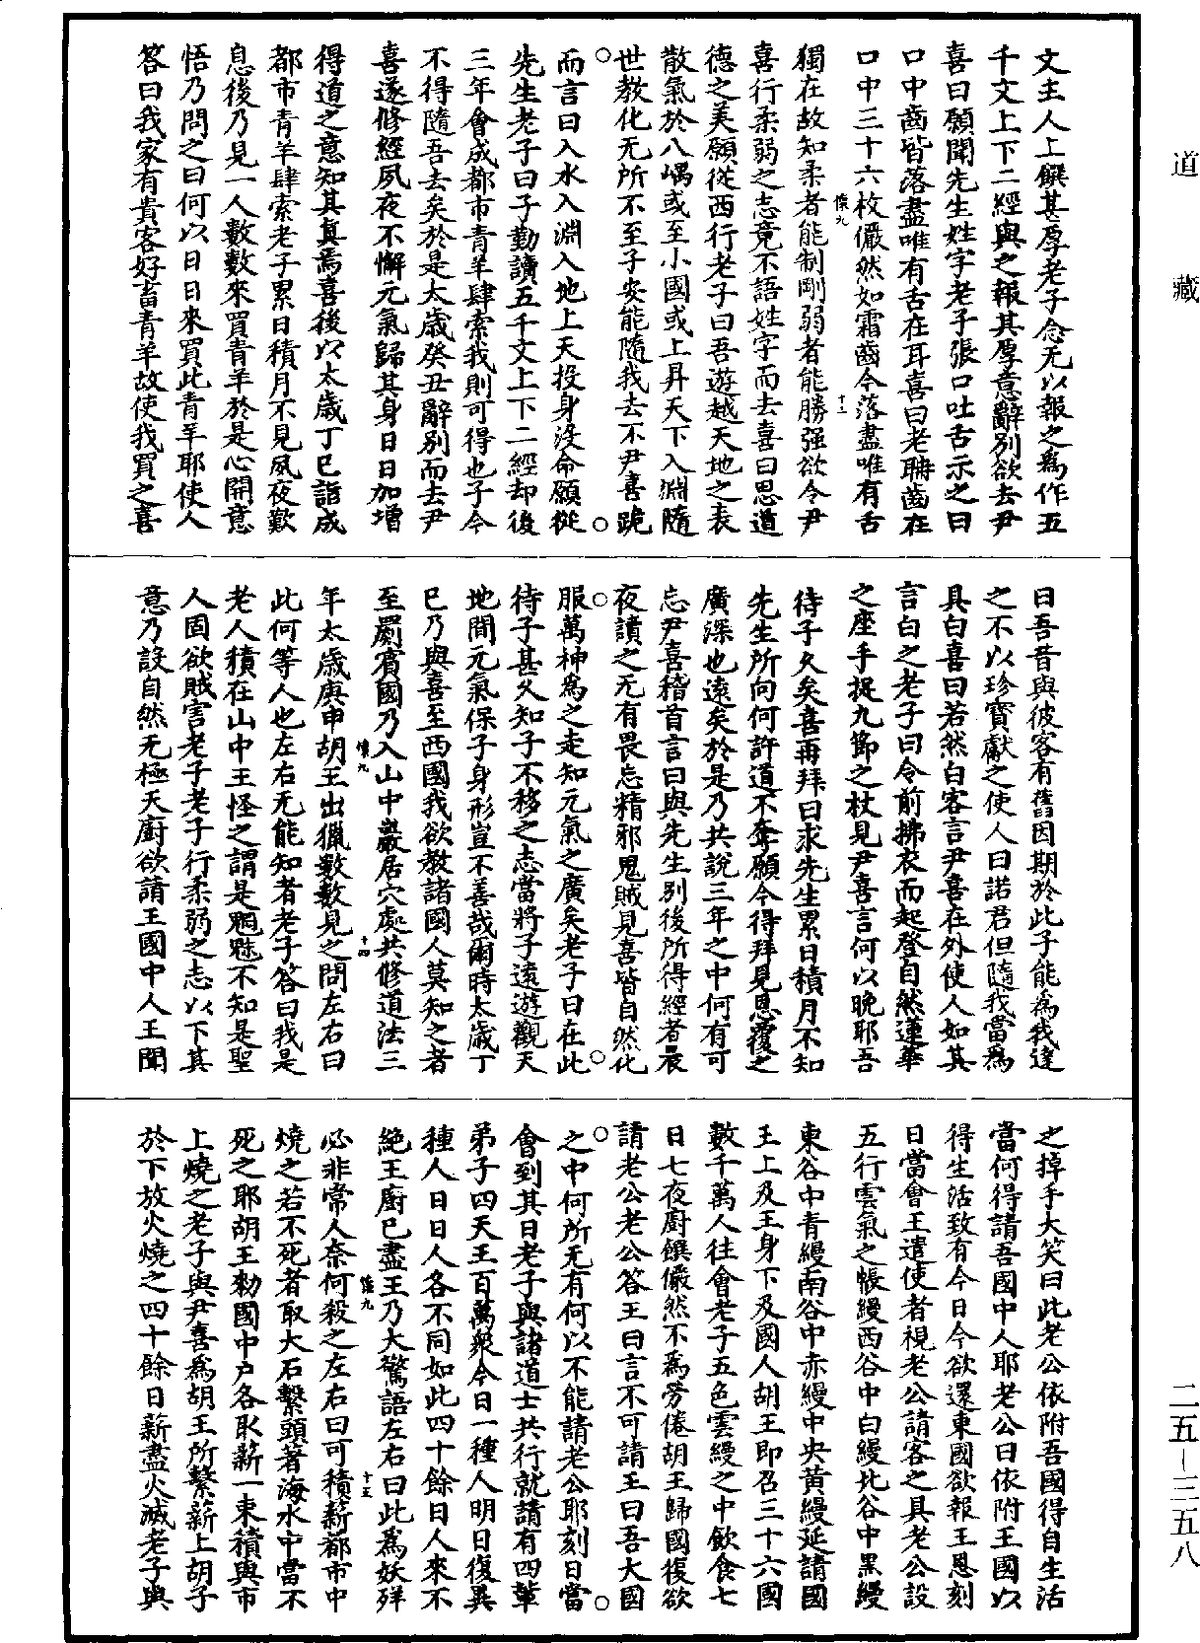 道藏
文主人上饌甚厚老子念无以報之為作五
千文上下二經與之報其厚意辭別欲去尹
喜曰願聞先生姓字老子張口吐舌示之曰
口中齒皆落盡唯有舌在耳喜曰老聃齒在
口中三十六枚儼然如霜齒今落盡唯有舌
懷九
十三
獨在故知柔者能制剛弱者能勝强欲令尹
喜行柔弱之志竟不語姓字而去喜曰思道
德之美願從西行老子曰吾遊越天地之表
散氣於八嵎或至小國或上昇天下入淵隨
世教化无所不至子安能隨我去不尹喜跪
而言曰入水入淵入地上天投身没命願從
先生老子曰子勤讀五千文上下二經却後
三年會成都市青羊肆索我則可得也子今
不得隨吾去矣於是太歲癸丑辭別而去尹
喜遂修經夙夜不懈元氣歸其身日日加增
得道之意知其真焉喜後以太歲丁巳詣成
都市青羊肆索老子累日積月不見夙夜歎
息後乃見一人數數來買青羊於是心開意
悟乃問之曰何以日日來買此青羊耶使人
答曰我家有貴客好畜青羊故使我買之喜
曰吾昔與彼客有舊因期於此子能為我達
之不以珍寶獻之使人曰諾君但隨我當為
具白喜曰若然白客言尹喜在外使人如其
言白之老子曰令前拂衣而起登自然蓮華
之座手捉九節之杖見尹喜言何以晚耶吾
待子久矣喜再拜曰求先生累日積月不知
先生所向何許道不奪願今得拜見恩覆之
廣深也遠矣於是乃共說三年之中何有可
忘尹喜稽首言曰與先生別後所得經者晨
夜讀之无有畏忘精邪鬼賊見喜皆自然化
服萬神為之走知元氣之廣矣老子曰在此
待子甚久知子不移之志當將子遠遊觀天
地間元氣保子身形豈不善哉爾時太歲丁
巳乃與喜至西國我欲教諸國人莫知之者
至罽賓國乃入山中巖居穴處共修道法三
懷九
十四
年太歲庚申胡王出獵數數見之問左右曰
此何等人也左右无能知者老子答曰我是
老人積在山中王怪之謂是魍魅不知是聖
人固欲賊害老子老子行柔弱之志以下其
意乃設自然无極天廚欲請王國中人王聞
之掉手大笑曰此老公依附吾國得自生活
當何得請吾國中人耶老公曰依附王國以
得生活致有今日今欲還東國欲報王恩刻
日當會王遣使者視老公請客之具老公設
五行雲氣之帳縵西谷中白縵北谷中黑縵
東谷中青縵南谷中赤縵中央黃縵延請國
王上及王身下及國人胡王即召三十六國
數千萬人往會老子五色雲縵之中飲食七
日七夜廚饌儼然不為勞倦胡王歸國復欲
請老公老公答王曰言不可請王曰吾大國
之中何所无有何以不能請老公耶刻日當
會到其日老子與諸道士共行就請有四輩
弟子四天王百萬眾今日一種人明日復異
種人日日人各不同如此四十餘日人來不
絕王廚已盡王乃大驚語左右曰此為妖祥
懷九
十五
必非常人奈何殺之左右曰可積薪都市中
燒之若不死者取大石繫頭著海水中當不
死之耶胡王勑國中戶各取薪一束積與市
上燒之老子與尹喜為胡王所繫薪上胡子
於下放火燒之四十餘日薪盡火滅老子與
二五—三五八